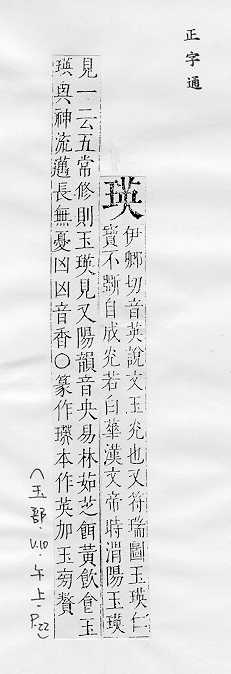 正字通
瑛
伊卿切音英說文玉灮也又符瑞圖玉瑛仁
寶不斲自成灮若白華漢文帝時渭陽玉瑛
見一云五常修則玉瑛見又陽韻音央易林茹芝餌黃飲食玉
瑛與神流邁長無憂凶凶音香○篆作本作英加玉旁贅
(玉部.V.10.午上-P.22)